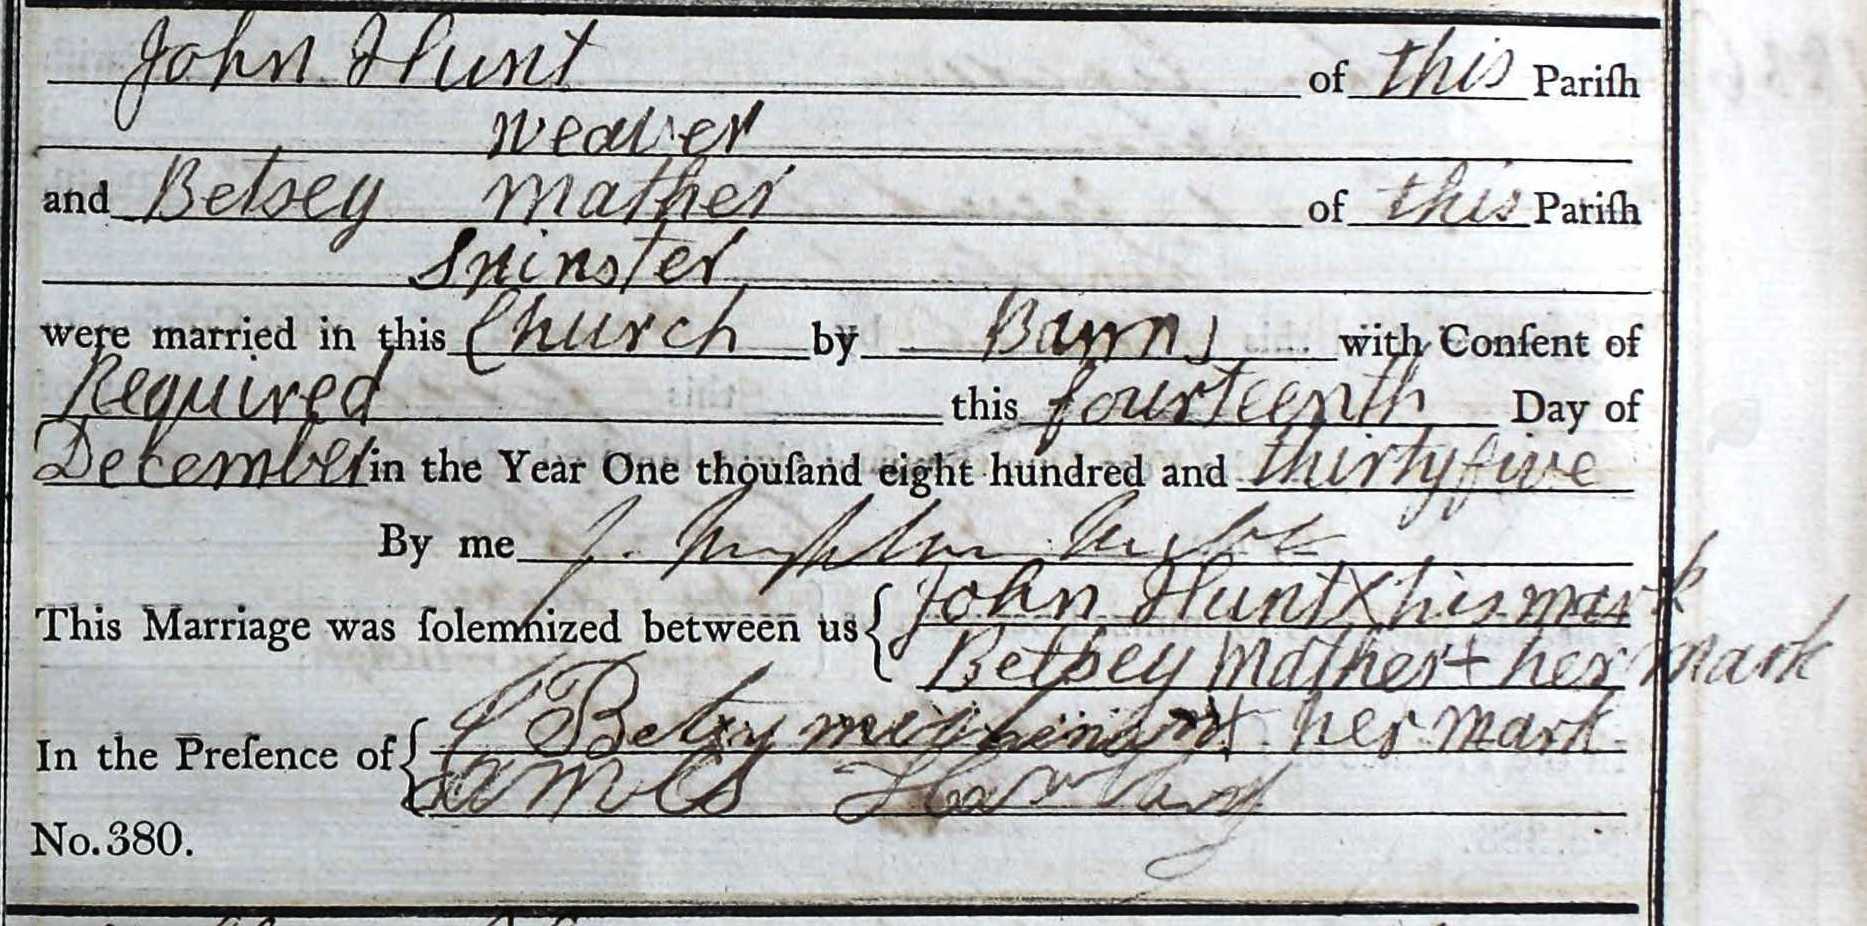 John Hunt of this Pariſh
weaver
and Betsey mather of this Pariſh
Spinster
were married in this Church by Banns with Conſent of
Required this fourteenth Day of
December in the Year One thouſand eight hundred and thirtyfive
By me J.
This Marriage was ſolemnized between us { John Hunt X his mark
Betsey Mather + her mark
In the Preſence of { Betsy + her mark
James
No. 380.